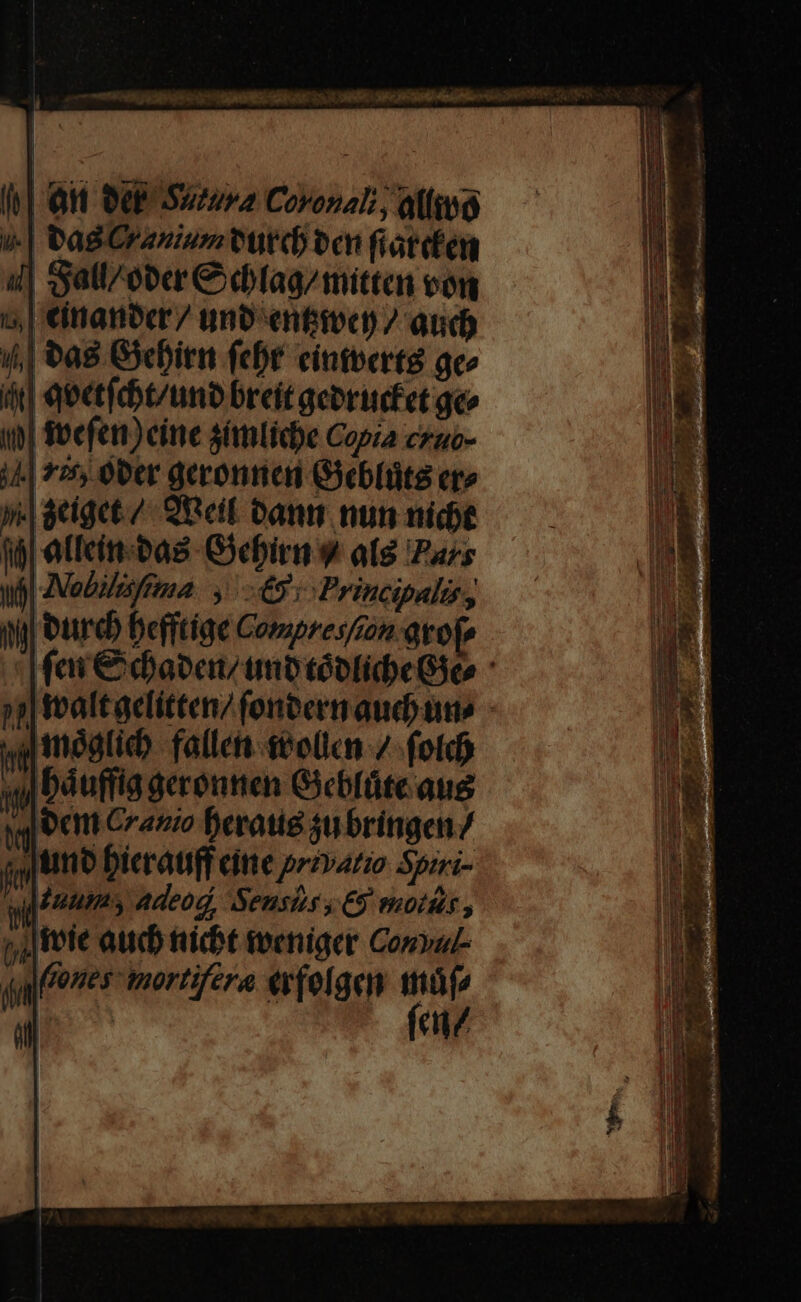 an der Sutura Coronali, allwo
das Cranium durch den ſtarcken
Fall/ oder Schlag/ mitten von
einander/ und entzwey/ auch
das Gehirn ſehr einwerts ge⸗
qvetſcht/ und breit gedrucket ge⸗
weſen) eine zimliche Copia cruo-
ris, oder geronnen Geblüts er⸗
zeiget/ Weil dann nun nicht
allein das Gehirn/ als Pars
Nobilisſima, & Principalis,
durch hefftige Compresſion groſ⸗
ſen Schaden/ und tödliche Ge⸗
walt gelitten/ ſondern auch un⸗
möglich fallen wollen/ ſolch
häuffig geronnen Geblüte aus
dem Cranio heraus zu bringen/
und hierauff eine privatio Spiri-
tuum, adeoq́, Sensûs, & motûs,
wie auch nicht weniger Convul-
ſiones mortiferæ erfolgen müſ⸗
ſen/